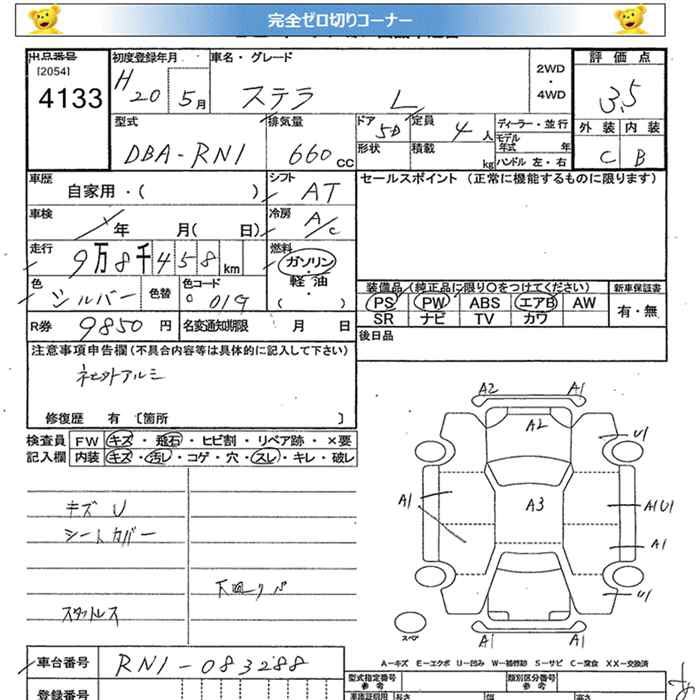 完全ゼロ切りコーナー
出品番号 初度登録年月 車名・グレード 評価点
[2054] H20 5月 ステラ L 2WD・4WD 3.5
4133
外装 内装
型式 排気量 ドア 5D 定員 4人 ディーラー・並行
モデル年式 年
DBA-RN1 660CC 形状 積載 kg ハンドル 左・右 C B
車歴 自家用・( ) シフト AT セールスポイント(正常に機能するものに限ります)
車検 年 月( 日) 冷房 A/C
走行 9万8千458km 燃料 ガソリン・軽油・( )
色 シルバー 色替 色コード 019 装備品(純正品に限り○をつけてください) 新車保証書
PS PW ABS エアB AW 有・無
R券 9850円 名変通知期限 月 日 SR ナビ TV カワ
注意事項申告欄(不具合内容等は具体的に記入して下さい) 後日品
修復歴 有〔箇所 〕
検査員 FW キズ・飛石・ヒビ割・リペア跡・×要
記入欄 内装 キズ・汚レ・コゲ・穴・スレ・キレ・破レ
キズ U
シートカバー
スタットレス
A2 A1
A2
U1
A1 A3 A1U1
A1
U1
A1 A1
スペア
車台番号 RN1-083288
A-キズ E-エクボ U-凹み W-補修跡 S-サビ C-腐食 XX-交換済
型式指定番号 参考 類別区分番号 参考
登録番号 長さ 幅 高さ